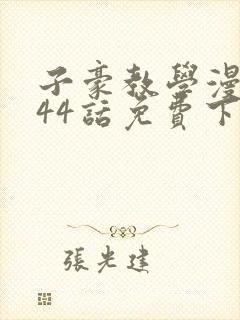 子豪教學漫
44話免費下
張光建